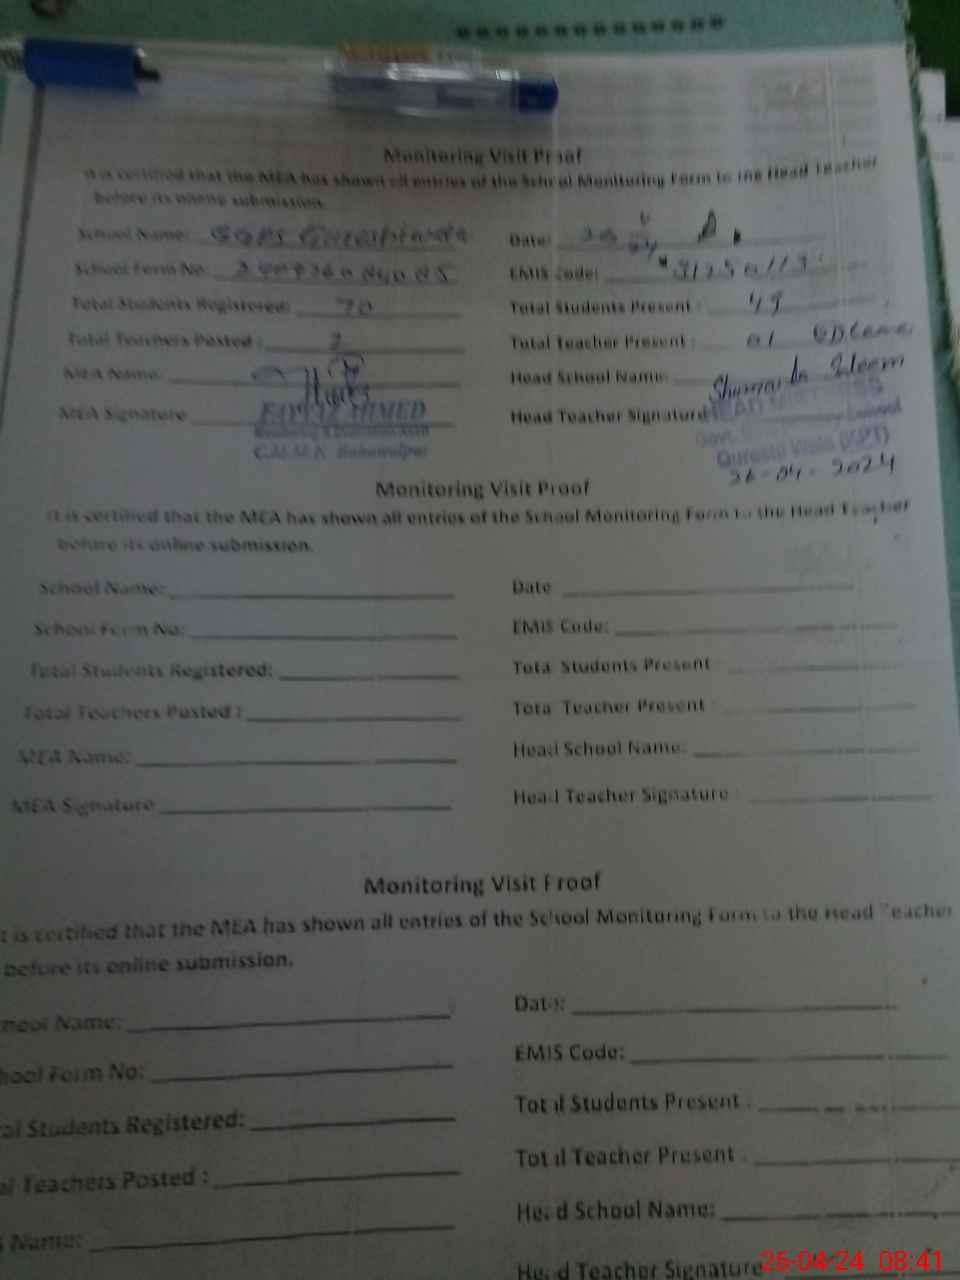 Monitoring Visit Proof
It is certified that the MEA has shown all entries of the School Monitoring Form to the Head Teacher
before its online submission.
School Name: GGPS Date: 26
School Form No. EMIS Code: 31250113
Total Students Registered: 70 Total Students Present : 49
Total Teachers Posted : 2 Total Teacher Present : 01
MEA Name: Head School Name:
MEA Signature Head Teacher Signature
FAYYAZ AHMED HEAD MISTRESS
Monitoring & Evaluation Asstt Govt.
C.M.M.F. Bahawalpur Quresha Wala (KPT)
26-04-2024
Monitoring Visit Proof
It is certified that the MEA has shown all entries of the School Monitoring Form to the Head Teacher
before its online submission.
School Name: Date
School Form No: EMIS Code:
Total Students Registered: Total Students Present
Total Teachers Posted : Total Teacher Present :
MEA Name: Head School Name:
MEA Signature Head Teacher Signature :
Monitoring Visit Proof
It is certified that the MEA has shown all entries of the School Monitoring Form to the Head Teacher
before its online submission.
hool Name: Date:
hool Form No: EMIS Code:
al Students Registered: Total Students Present :
al Teachers Posted : Total Teacher Present :
Name: Head School Name:
Head Teacher Signature
26-04-24 08:41